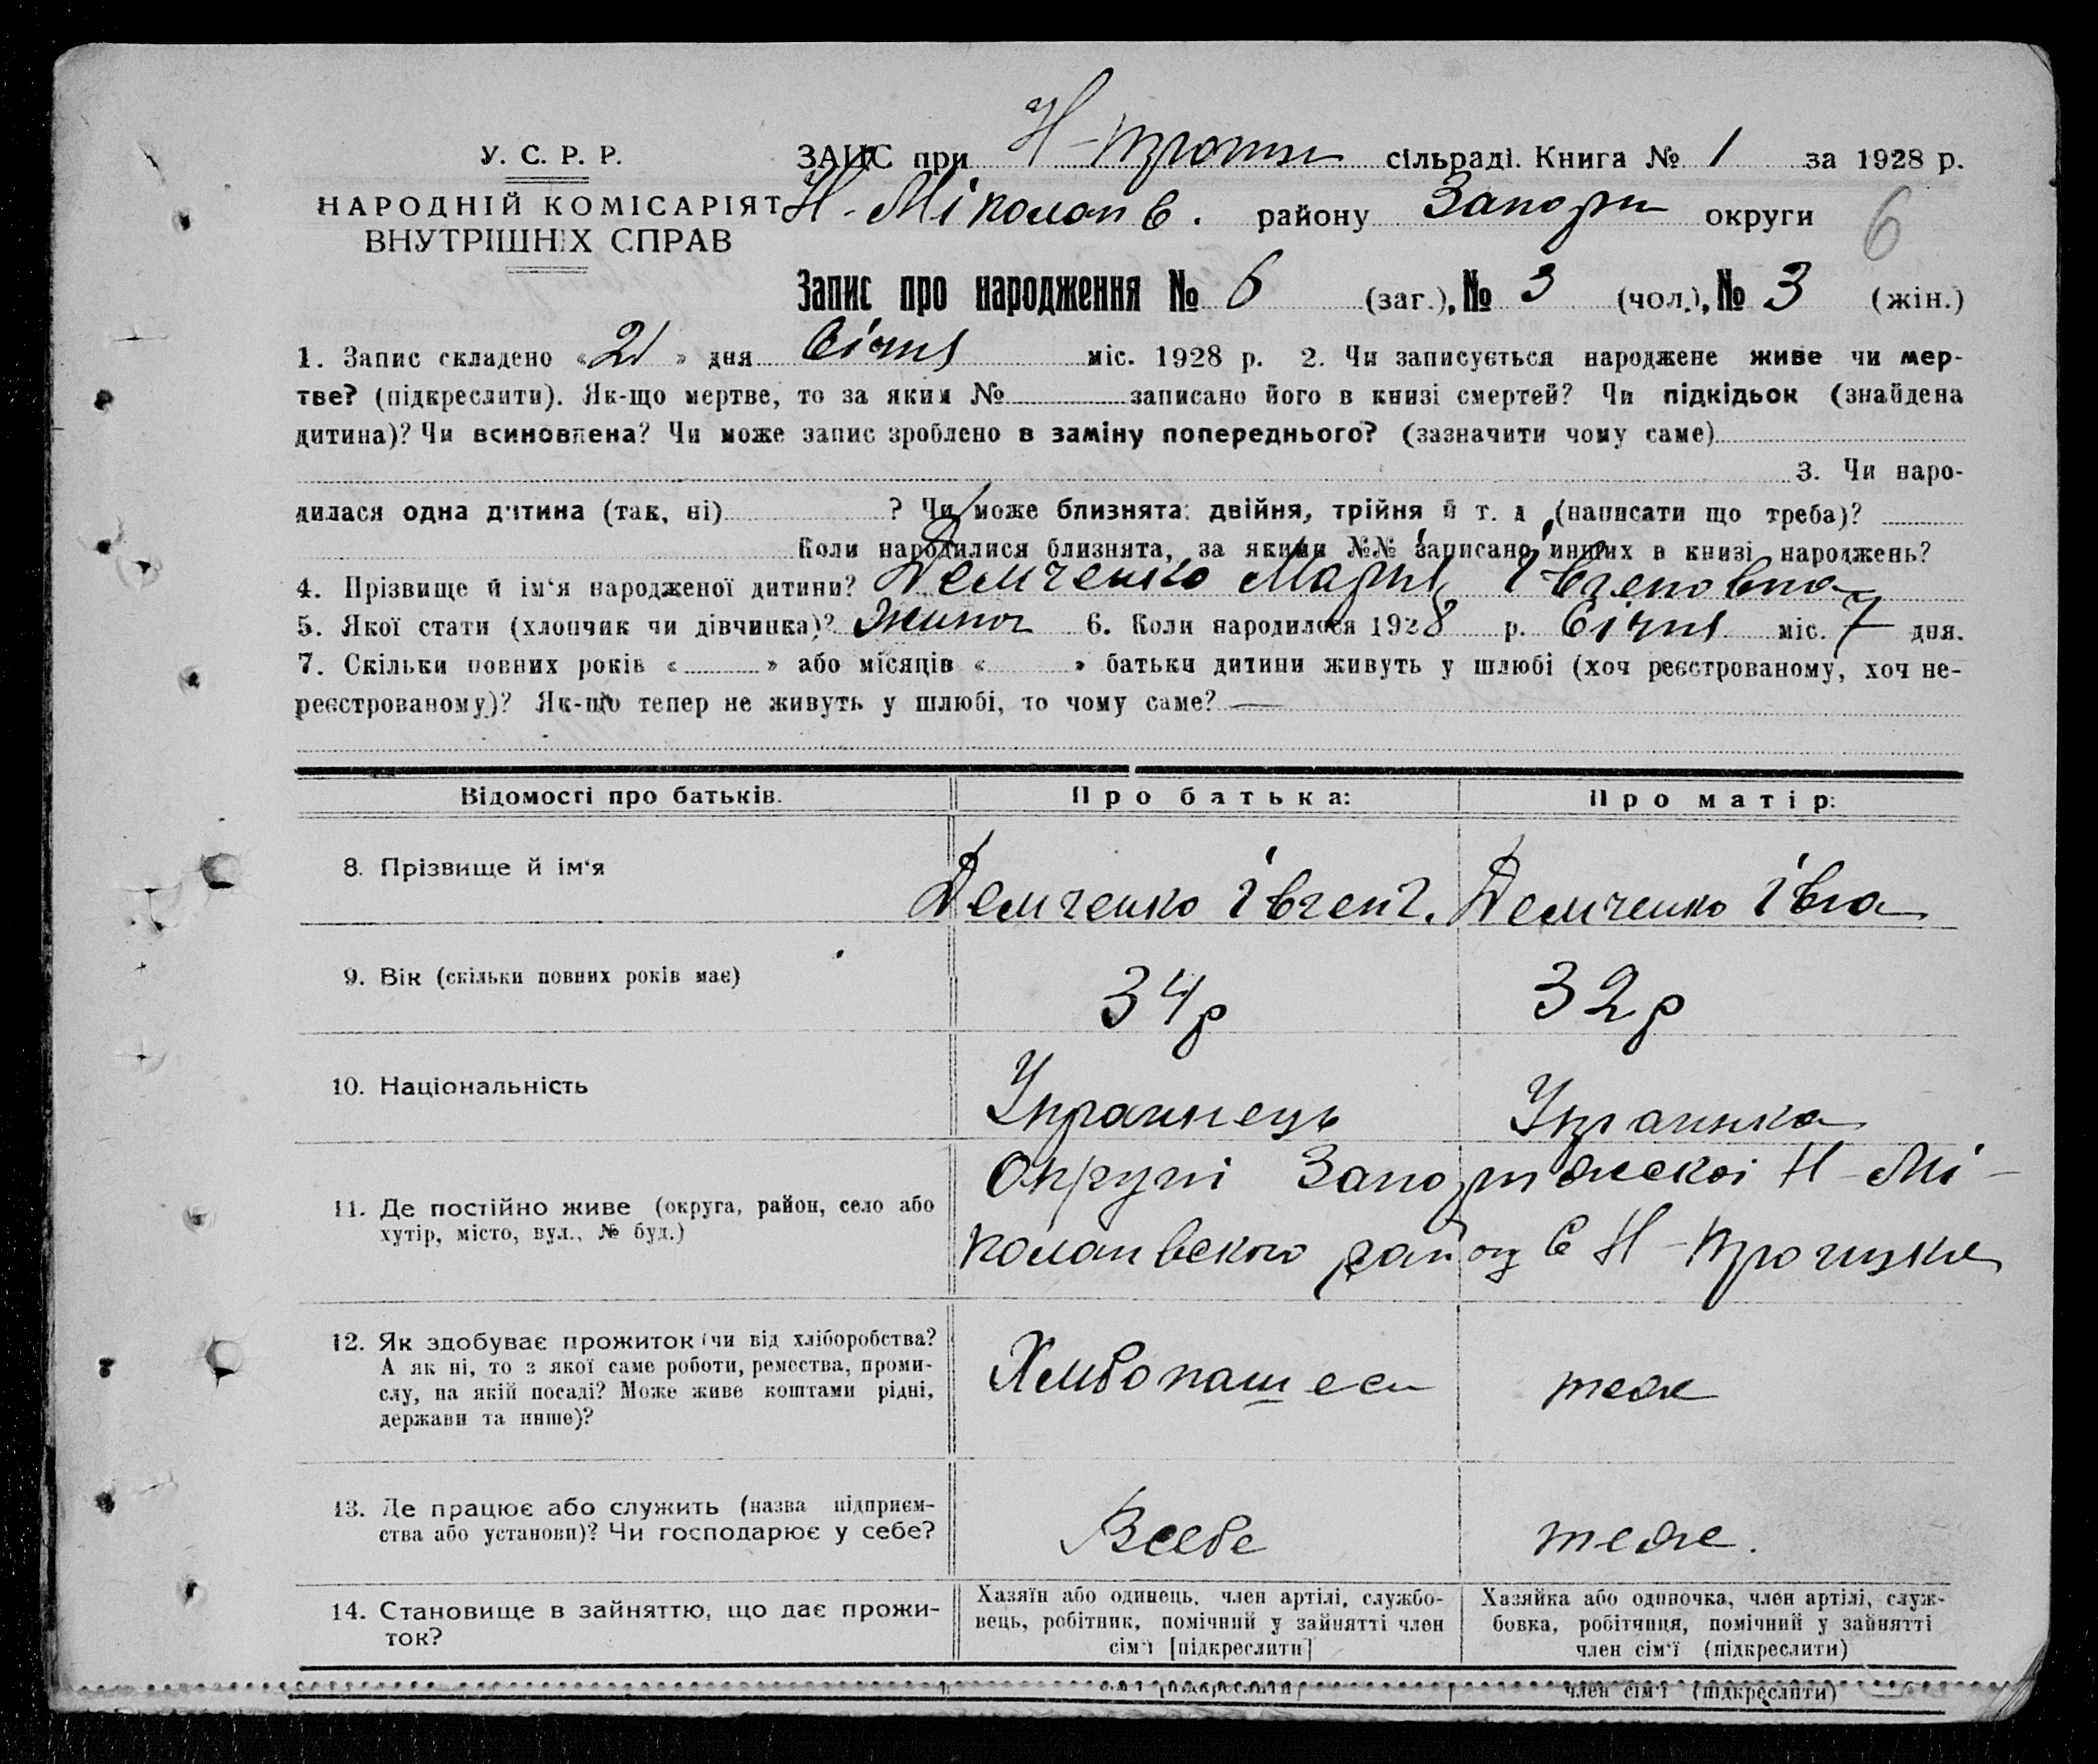 У. С. Р. Р.
НАРОДНІЙ КОМІСАРІЯТ
ВНУТРІШНІХ СПРАВ
ЗАГС при Н-Троти сільраді. Книга № 1 за 1928 р.
Н-Міколаів. району Запорі округи
6
Запис про народження № 6 (заг.), № 3 (чол.), № 3 (жін.)
1. Запис складено «21» дня Січня міс. 1928 р. 2. Чи записується народжене живе чи мер-
тве? (підкреслити). Як-що мертве, то за яким № записано його в книзі смертей? Чи підкідьок (знайдена
дитина)? Чи всиновлена? Чи може запис зроблено в заміну попереднього? (зазначити чому саме)
3. Чи наро-
дилася одна дитина (так, ні) ? Чи може близнята: двійня, трійня й т. д (написати що треба)?
Коли народилися близнята, за якими №№ записано инших в книзі народжень?
4. Прізвище й ім'я народженої дитини? Демченко Марія Івгеновна
5. Якої стати (хлопчик чи дівчинка)? Жіноч 6. Коли народилося 1928 р. Січня міс. 7 дня.
7. Скільки повних років « » або місяців « » батьки дитини живуть у шлюбі (хоч реєстрованому, хоч не-
реєстрованому)? Як-що тепер не живуть у шлюбі, то чому саме? —
Відомості про батьків. Про батька: Про матір:
8. Прізвище й ім'я Демченко Івген Г. Демченко Івга
9. Вік (скільки повних років має) 34 р 32 р
10. Національність Украинець Украинка
11. Де постійно живе (округа, район, село або
хутір, місто, вул., № буд.)
Округи Запоріжскоі Н-Мі-
колаивского району С Н-
12. Як здобуває прожиток (чи від хліборобства?
А як ні, то з якої саме роботи, ремества, проми-
слу, на якій посаді? Може живе коштами рідні,
держави та инше)?
Хлібопашеси теже
13. Де працює або служить (назва підприєм-
ства або установи)? Чи господарює у себе?
Всебе теже.
14. Становище в зайняттю, що дає прожи-
ток?
Хазяїн або одинець, член артілі, службо-
вець, робітник, помічний у зайнятті член
сім'ї [підкреслити]
Хазяйка або одиночка, член артілі, служ-
бовка, робітниця, помічний у зайнятті
член сім'ї (підкреслити)
член сім'ї (підкреслити)